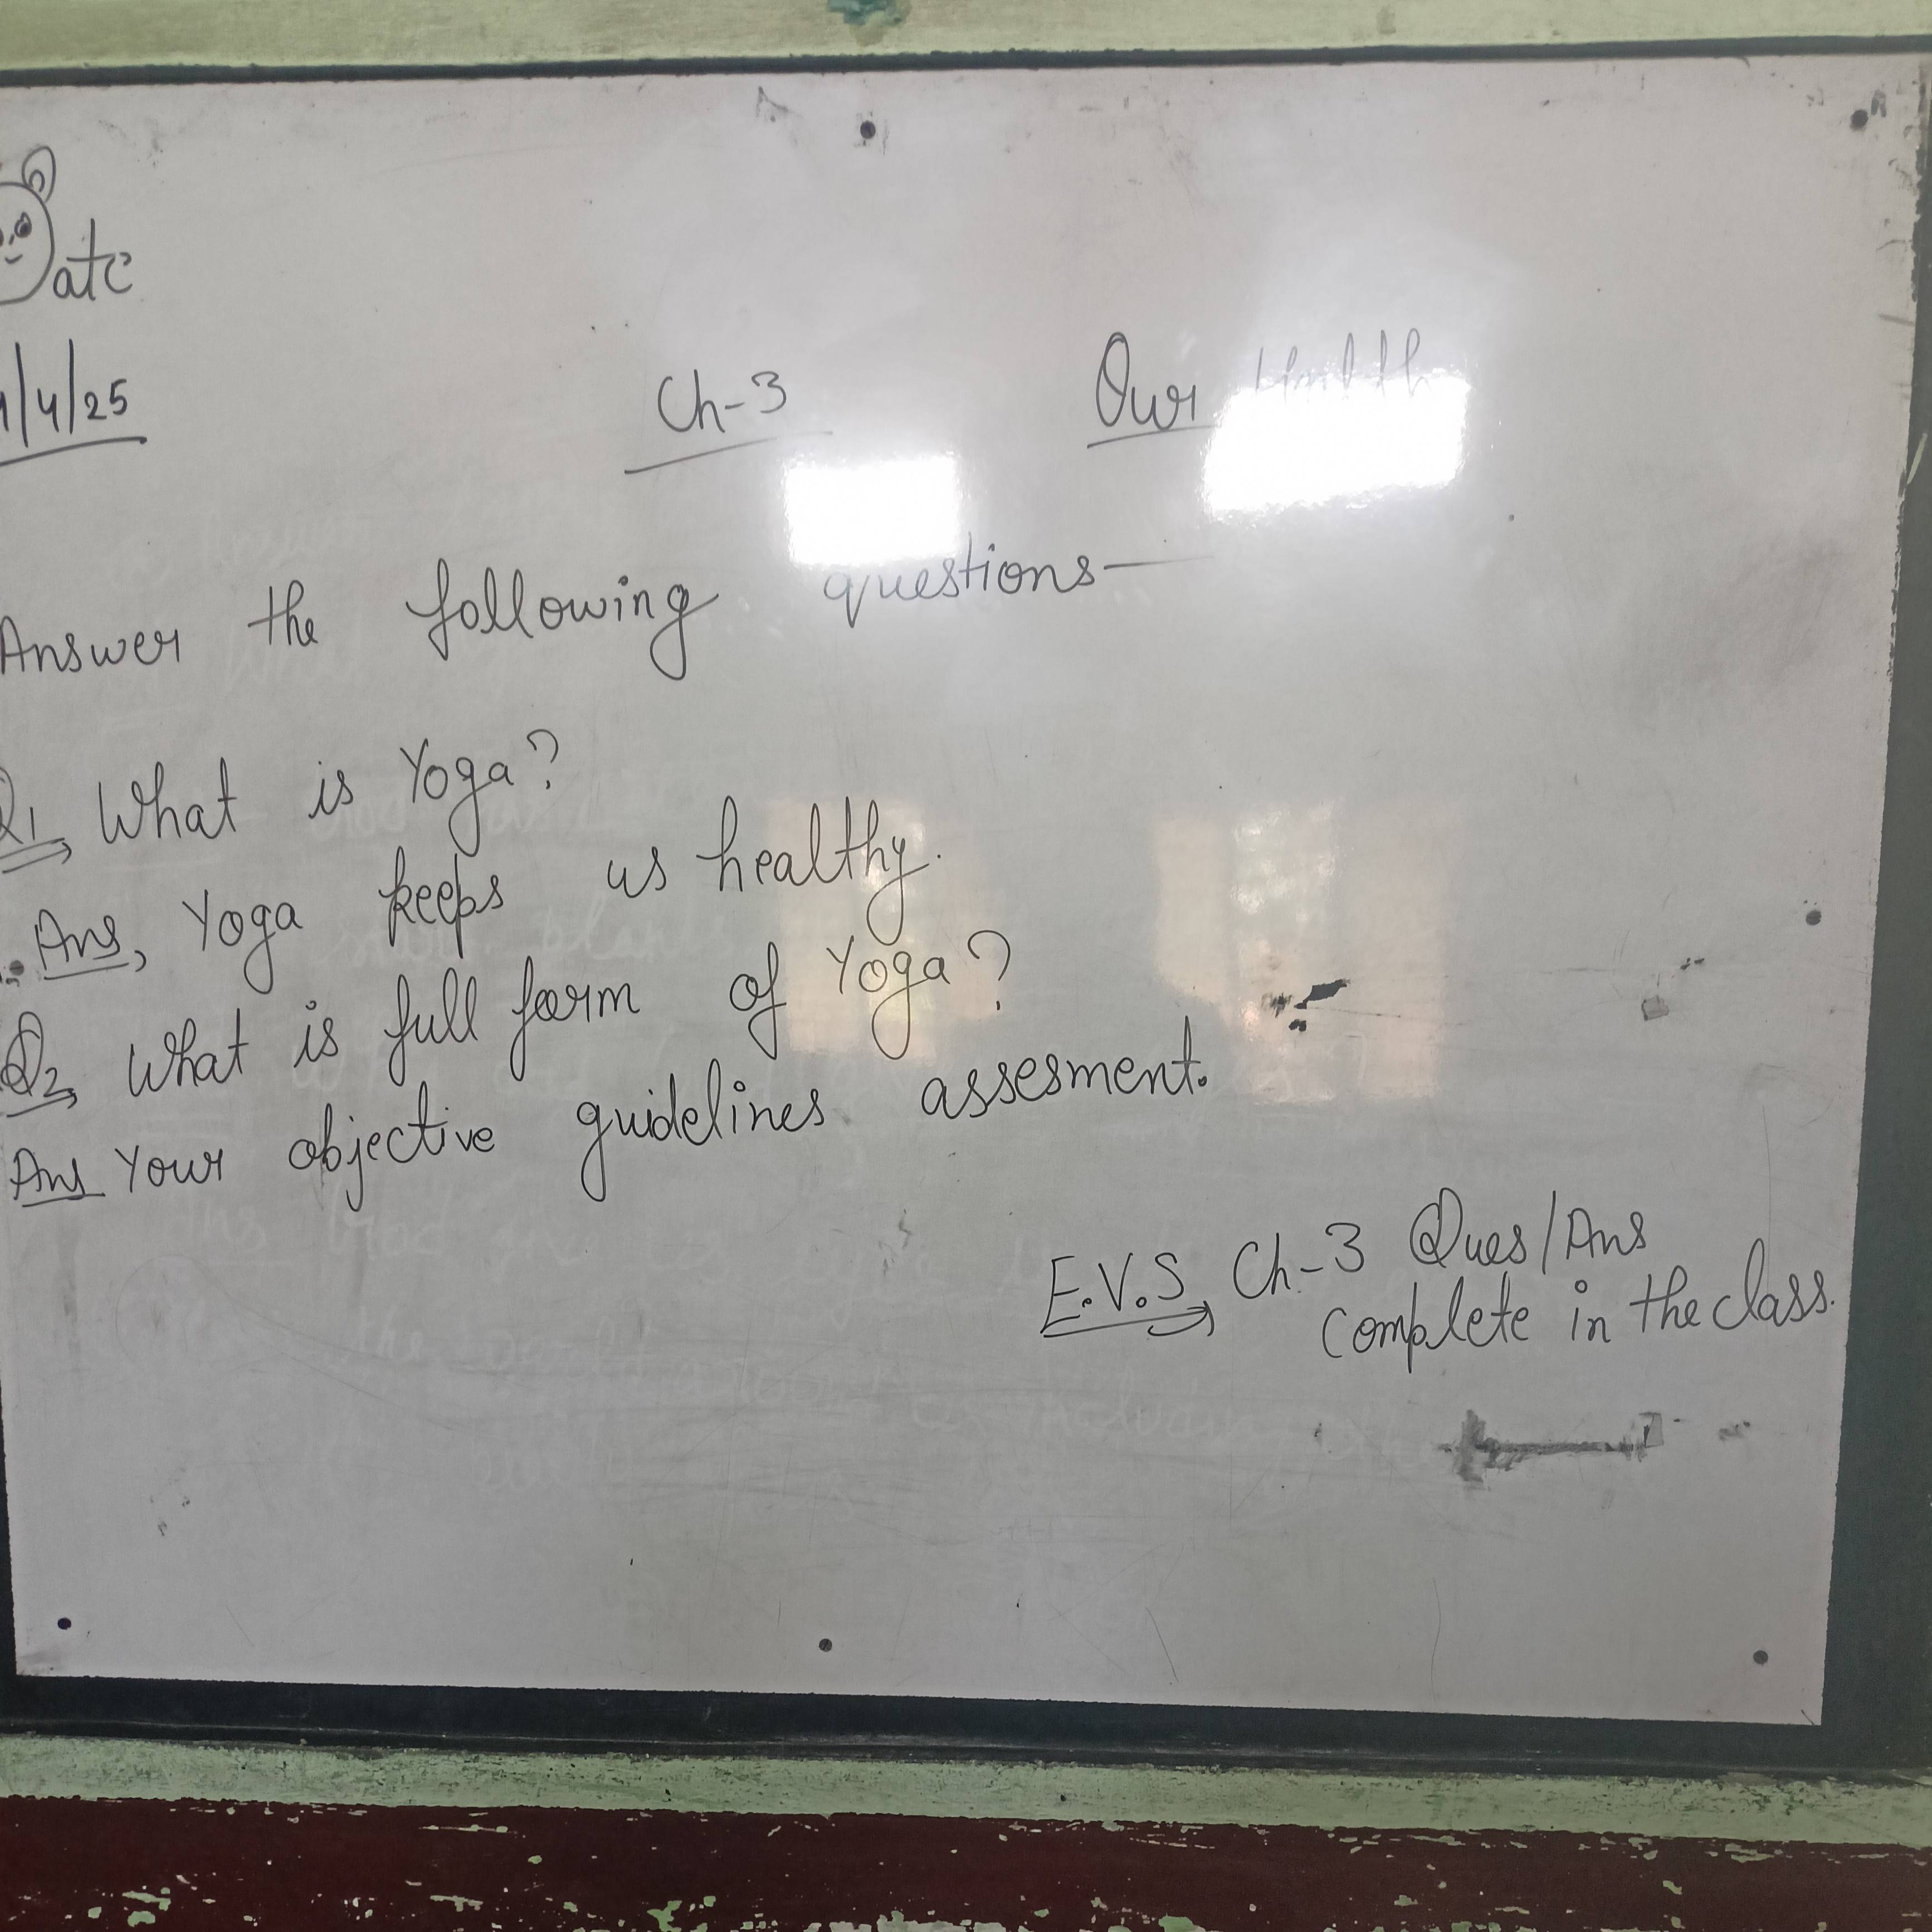 Date
1/4/25
Ch-3 Our Health
Answer the following questions—
Q1, What is Yoga?
Ans, Yoga keeps us healthy.
Q2, What is full form of Yoga?
Ans Your objective guidelines assesment.
E.V.S, Ch-3 Ques/Ans
Complete in the class.